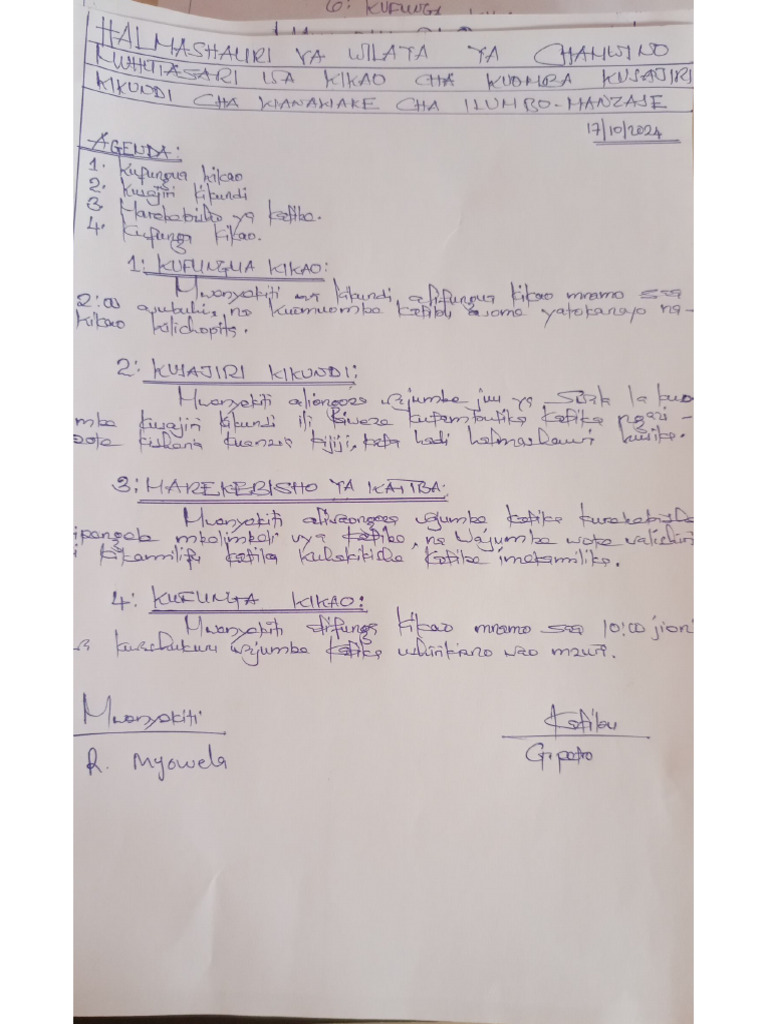 6: KUFUNGA
HALMASHAURI YA WILAYA YA CHAMWINO
MUHTASARI WA KIKAO CHA KUOMBA KUSAJIRI
KIKUNDI CHA WANAWAKE CHA ILUMBO-MANZASE
17/10/2024
AGENDA:
1. Kufungua kikao
2. Kusajiri kikundi
3. Marekebisho ya katiba.
4. Kufunga kikao.
1: KUFUNGUA KIKAO:
Mwenyekiti wa kikundi alifungua kikao mnamo saa
2:00 asubuhi, na kumuomba katibu asome yatokanayo na-
kikao kilichopita.
2: KUSAJIRI KIKUNDI:
Mwenyekiti aliongoza wajumbe juu ya Suala la kuo
mba kusajiri kikundi ili kiweze kutambulika katika ngazi-
zote kisheria kuanzia kijiji, kata hadi halmashauri husika.
3: MAREKEBISHO YA KATIBA:
Mwenyekiti aliwaongoza wajumbe katika kurekebisha
ipengele mbalimbali vya katiba, na wajumbe wote walishiri
i kikamilifu katika kuhakikisha katiba imekamilika.
4: KUFUNGA KIKAO:
Mwenyekiti alifunga kikao mnamo saa 10:00 jioni
a kuwashukuru wajumbe katika ushirikiano wao mzuri.
Mwenyekiti
Katibu
R. Myowela
G. petro